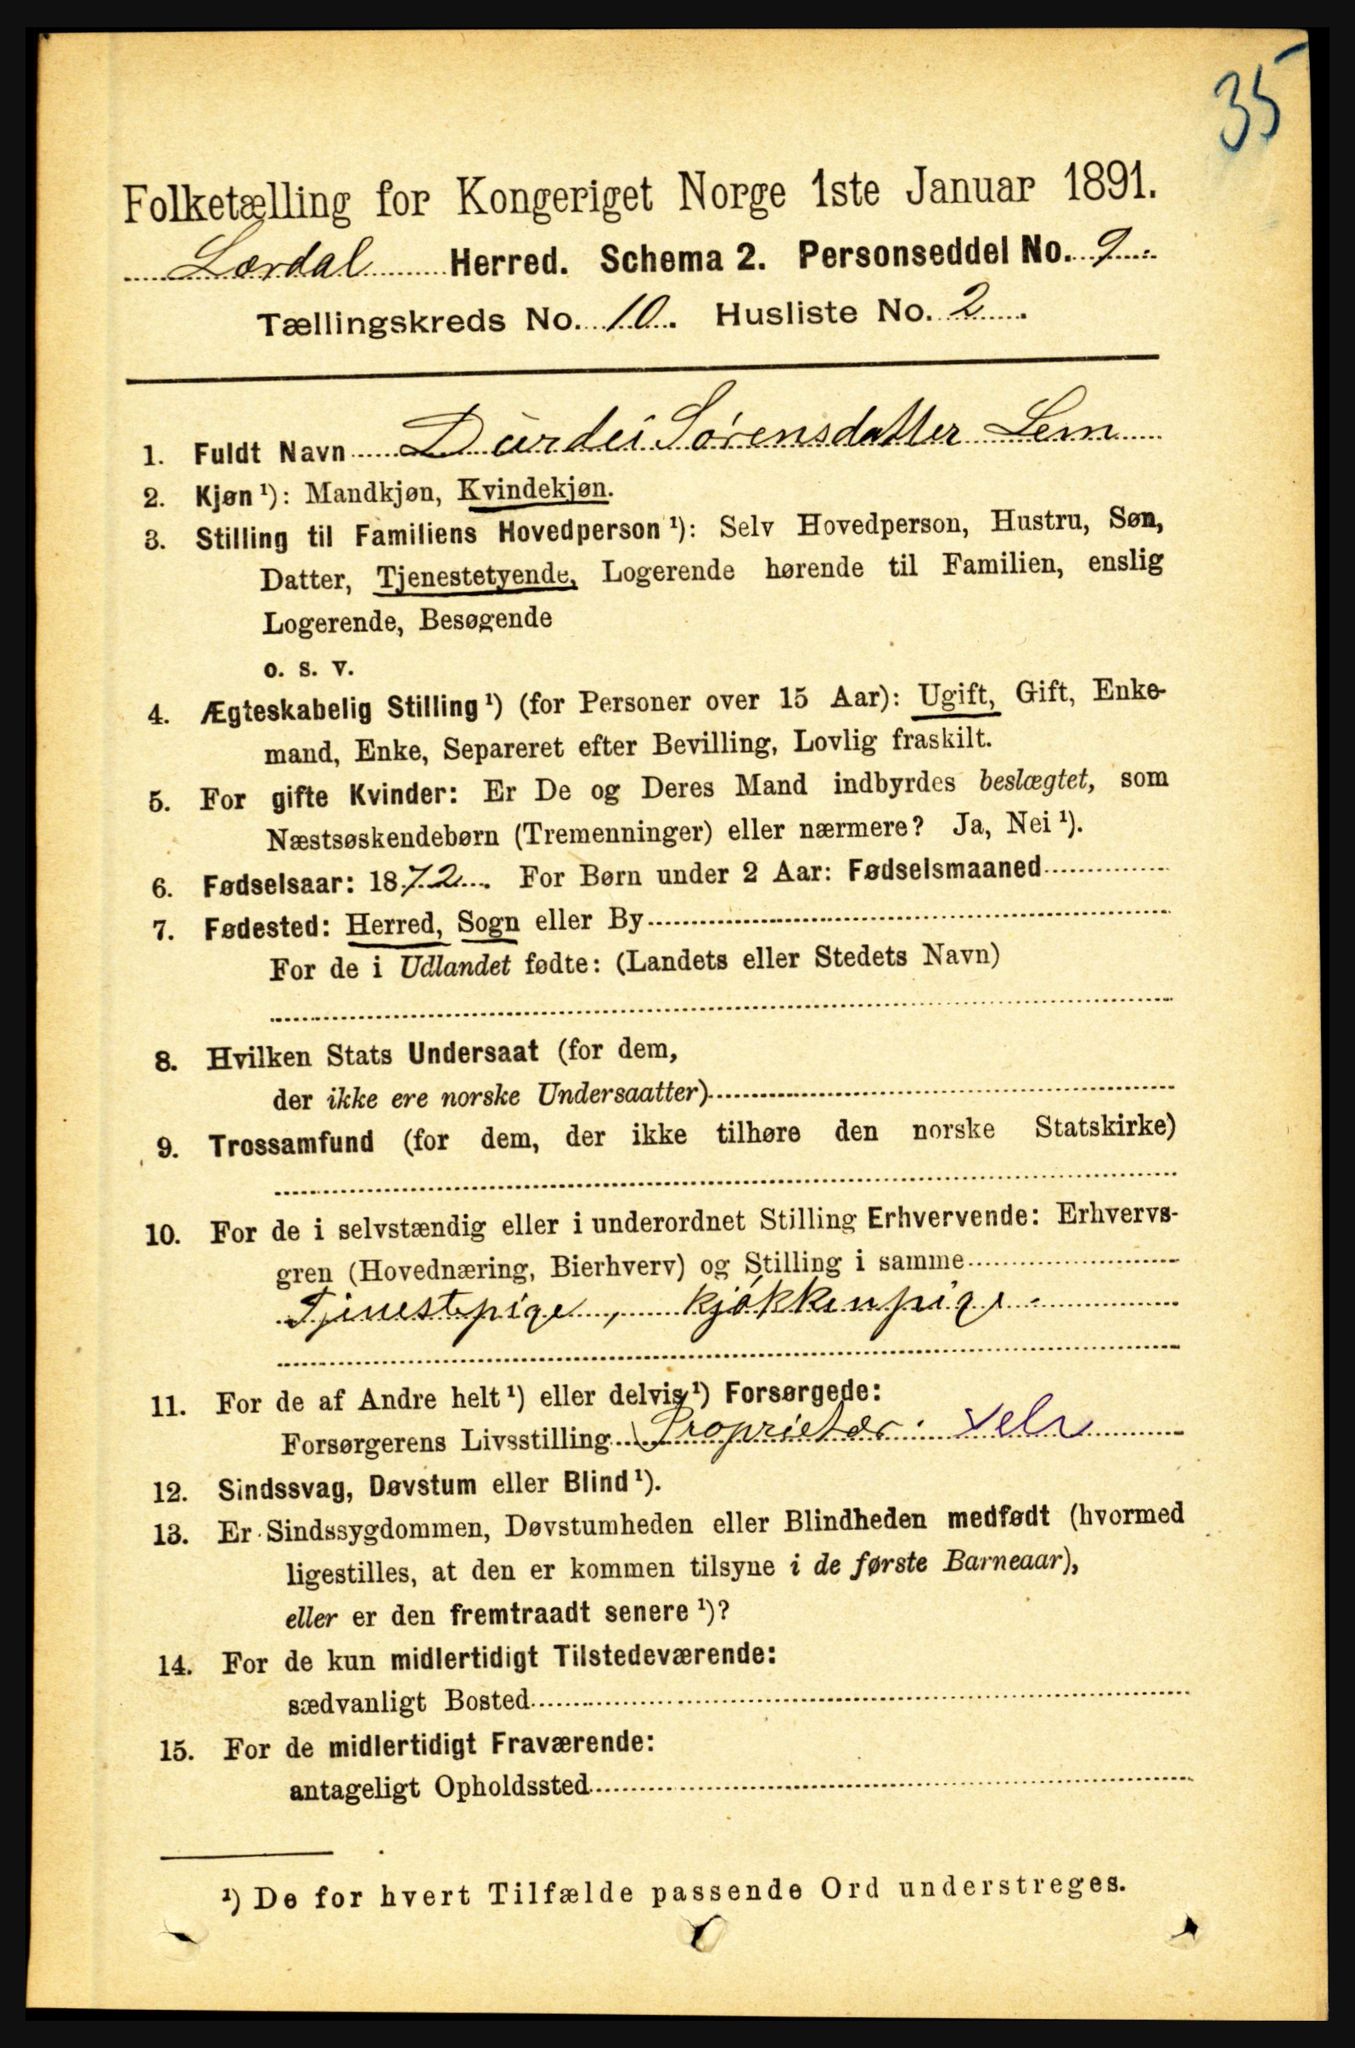 35
Folketælling for Kongeriget Norge 1ste Januar 1891.
Lærdal Herred. Schema 2. Personseddel No. 9.
Tællingskreds No. 10. Husliste No. 2.
1. Fuldt Navn Durdei Sørensdatter Lem
2. Kjøn ¹): Mandkjøn, Kvindekjøn.
3. Stilling til Familiens Hovedperson ¹): Selv Hovedperson, Hustru, Søn,
Datter, Tjenestetyende, Logerende hørende til Familien, enslig
Logerende, Besøgende
o. s. v.
4. Ægteskabelig Stilling ¹) (for Personer over 15 Aar): Ugift, Gift, Enke-
mand, Enke, Separeret efter Bevilling, Lovlig fraskilt.
5. For gifte Kvinder: Er De og Deres Mand indbyrdes beslægtet, som
Næstsøskendebørn (Tremenninger) eller nærmere? Ja, Nei ¹).
6. Fødselsaar: 1872. For Børn under 2 Aar: Fødselsmaaned
7. Fødested: Herred, Sogn eller By
For de i Udlandet fødte: (Landets eller Stedets Navn)
8. Hvilken Stats Undersaat (for dem,
der ikke ere norske Undersaatter)
9. Trossamfund (for dem, der ikke tilhøre den norske Statskirke)
10. For de i selvstændig eller i underordnet Stilling Erhvervende: Erhvervs-
gren (Hovednæring, Bierhverv) og Stilling i samme
Tjenestepige, kjøkkenpige.
11. For de af Andre helt ¹) eller delvis ¹) Forsørgede:
Forsørgerens Livsstilling Proprietær. selv
12. Sindssvag, Døvstum eller Blind ¹).
13. Er Sindssygdommen, Døvstumheden eller Blindheden medfødt (hvormed
ligestilles, at den er kommen tilsyne i de første Barneaar),
eller er den fremtraadt senere ¹)?
14. For de kun midlertidigt Tilstedeværende:
sædvanligt Bosted
15. For de midlertidigt Fraværende:
antageligt Opholdssted
¹) De for hvert Tilfælde passende Ord understreges.